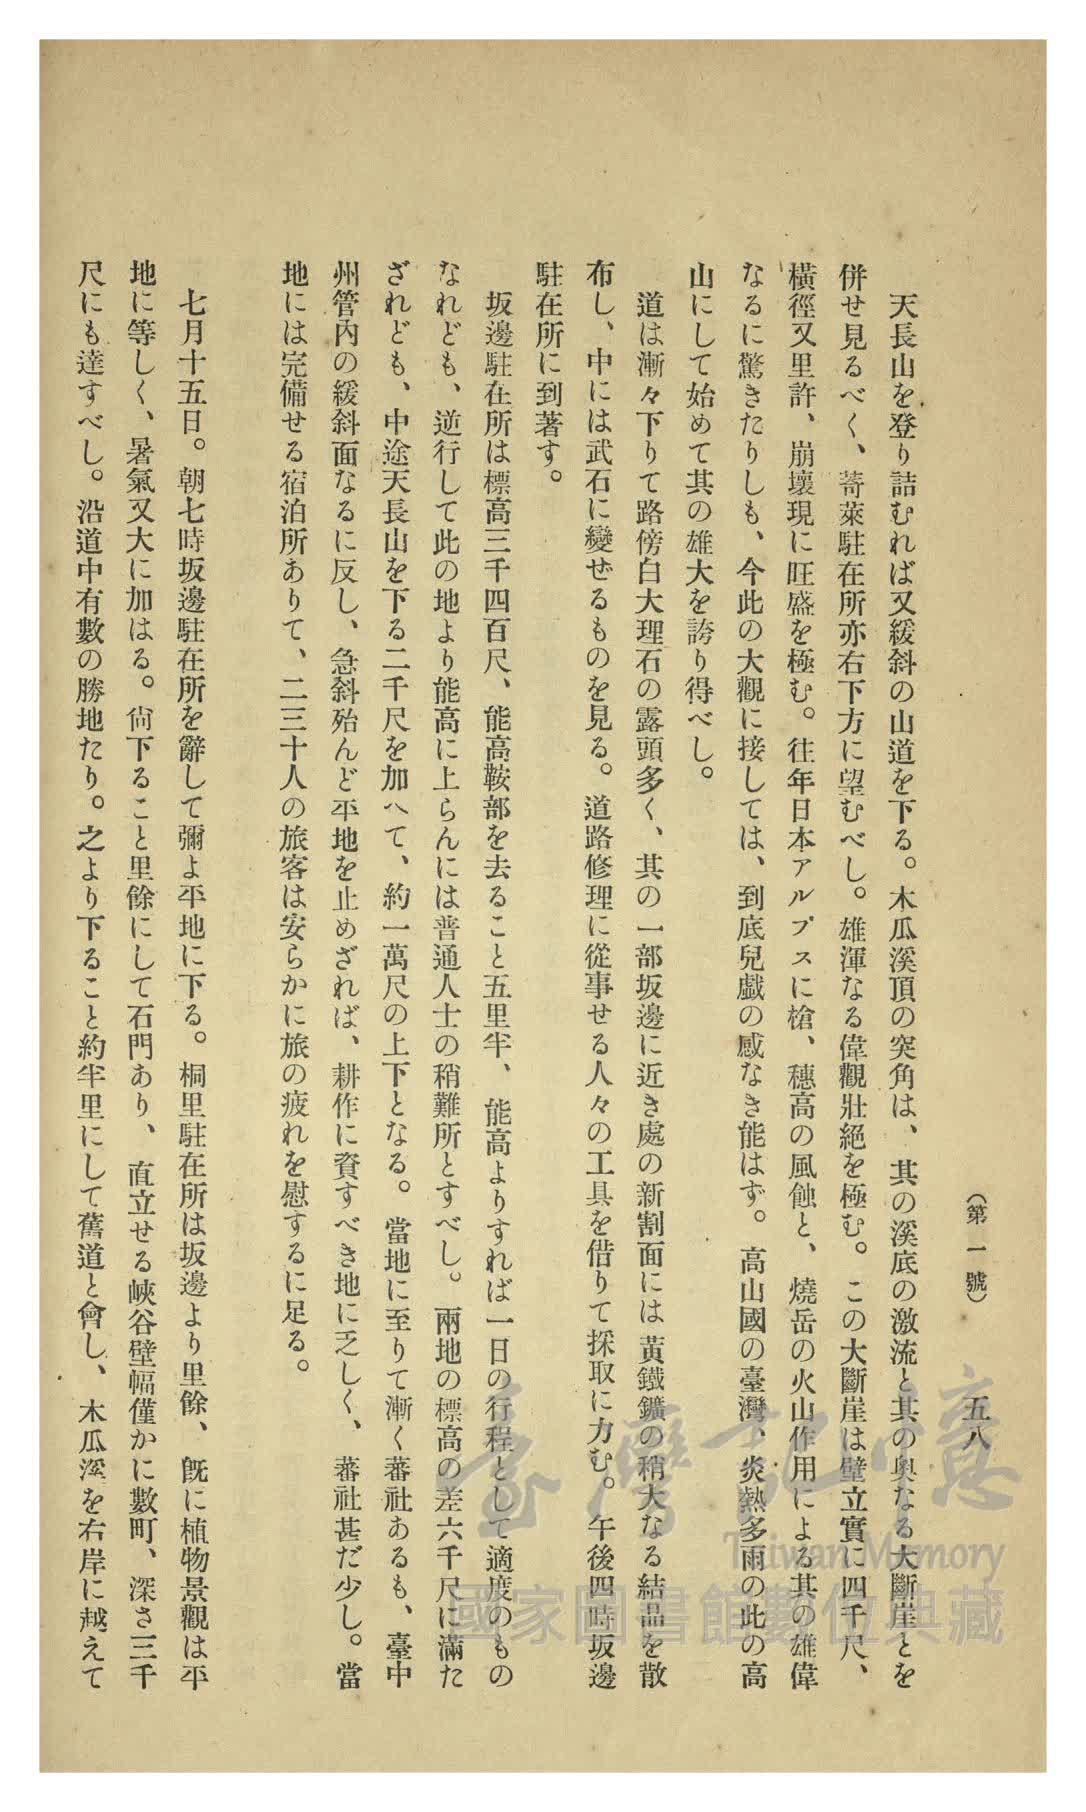 (第一號) 五八
天長山を登り詰むれば又緩斜の山道を下る。木瓜溪頂の突角は、其の溪底の激流と其の奧なる大斷崖とを
併せ見るべく、蒋萊駐在所亦右下方に望むべし。雄渾なる偉觀壯絕を極む。この大斷崖は壁立實に四千尺、
橫徑又里許、崩壞現に旺盛を極む。往年日本アルプスに槍、穗高の風蝕と、燒岳の火山作用による其の雄偉
なるに驚きたりしも、今此の大觀に接しては、到底兒戲の感なき能はず。高山國の臺灣、炎熱多雨の此の高
山にして始めて其の雄大を誇り得べし。
道は漸々下りて路傍白大理石の露頭多く、其の一部坂邊に近き處の新割面には黃鐵鑛の稍大なる結晶を散
布し、中には武石に變ぜるものを見る。道路修理に從事せる人々の工具を借りて採取に力む。午後四時坂邊
駐在所に到著す。
坂邊駐在所は標高三千四百尺、能高鞍部を去ること五里半、能高よりすれば一日の行程として適度のもの
なれども、逆行して此の地より能高に上らんには普通人士の稍難所とすべし。兩地の標高の差六千尺に滿た
ざれども、中途天長山を下る二千尺を加へて、約一萬尺の上下となる。當地に至りて漸く蕃社あるも、臺中
州管內の緩斜面なるに反し、急斜殆んど平地を止めざれば、耕作に資すべき地に乏しく、蕃社甚だ少し。當
地には完備せる宿泊所ありて、二三十人の旅客は安らかに旅の疲れを慰するに足る。
七月十五日。朝七時坂邊駐在所を辭して彌よ平地に下る。桐里駐在所は坂邊より里餘、旣に植物景觀は平
地に等しく、暑氣又大に加はる。尙下ること里餘にして石門あり、直立せる峽谷壁幅僅かに數町、深さ三千
尺にも達すべし。沿道中有數の勝地たり。之より下ること約半里にして舊道と會し、木瓜溪を右岸に越えて
臺灣記憶
Taiwan Memory
國家圖書館數位典藏